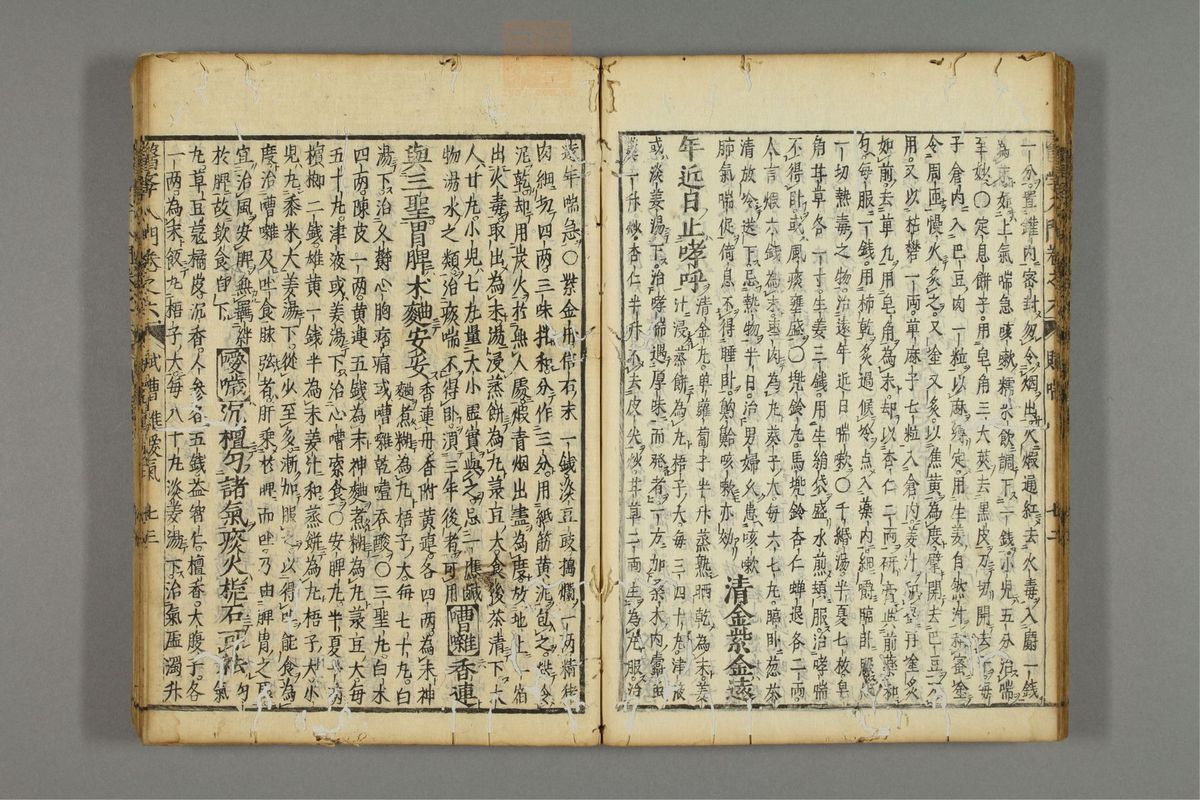 一分置罐內密封勿令烟出火煅通紅去火毒入麝一錢
為末如上氣喘急咳嗽糯米飲調下一錢小兒五分治喘
至妙○定息餅子用皂角三大莢去黑皮切開去子每
子倉內入巴豆肉一粒以麻縛定用生姜自然汁和蜜塗
令周匝慢火炙之又塗又炙以焦黃為度擘開去巴豆不
用又以枯礬一兩萆麻子七粒入倉內姜汁蜜再塗炙
如前去萆九用皂角為末却以杏仁二兩研膏與前藥和
勻每服一錢用柿乾炙過候冷點入藥內細嚼臨臥服
一切熱毒之物治遠年近日喘嗽○千緡湯半夏七枚皂
角甘草各一寸生姜三錢用生絹袋盛水煎頓服治哮喘
不得臥或風痰壅盛○兜鈴丸馬兜鈴杏仁蟬退各二兩
人言煅六錢為末棗肉為丸葵子大每六七丸臨臥葱茶
清放冷送下忌熱物半日治男婦久患咳嗽
肺氣喘促倚息不得睡臥齁䶎咳嗽亦效 清金紫金遠
年近日止哮呼 清金丸單蘿蔔子半升蒸熟晒乾為末姜
汁浸蒸餅為丸梧子大每三四十丸津液
或淡姜湯下治哮喘遇厚味而發者一方加桑木內蠹虫
糞一升炒杏仁半升去皮尖炒甘草二兩生為丸服治
遠年喘急○紫金丹信石末一錢淡豆豉搗爛一兩精猪
肉細切四兩三味拌和分作三分用紙筋黃泥包之烘令
泥乾却用炭火於無人處煅青烟出盡為度放地上一宿
出火毒取出為末湯浸蒸餅為丸菉豆大食後茶清下大
人廿丸小兒七丸量大小虛實與之忌一應鹹
物湯水之類治痰喘不得臥須三年後者可用 嘈雜 香連
與三聖胃脾术麯安妥 香連丹香附黃連各四兩為末神
麯煮糊為丸梧子大每七十丸白
湯下治久鬱心胸痞痛或嘈雜乾噎吞酸○三聖丸白朮
四兩陳皮一兩黃連五錢為末神麯煮糊為丸菉豆大每
五十丸津液或姜湯下治心嘈索食○安脾丸半夏一兩
檳榔二錢雄黃一錢半為末姜汁和蒸餅為丸梧子大小
兒丸黍米大姜湯下從少至多漸加服之以得能食為
度治嘈雜及吐食脉弦者肝乘於脾而吐乃由脾胃之虛
宜治風安脾無羈絆 噯噦 沉檀勻諸氣痰火梔石可袪勻
丸草豆蔻橘皮沉香人參各五錢益智仁檀香大腹子各
一兩為末飯丸梧子大每八十丸淡姜湯下治氣虛濁升